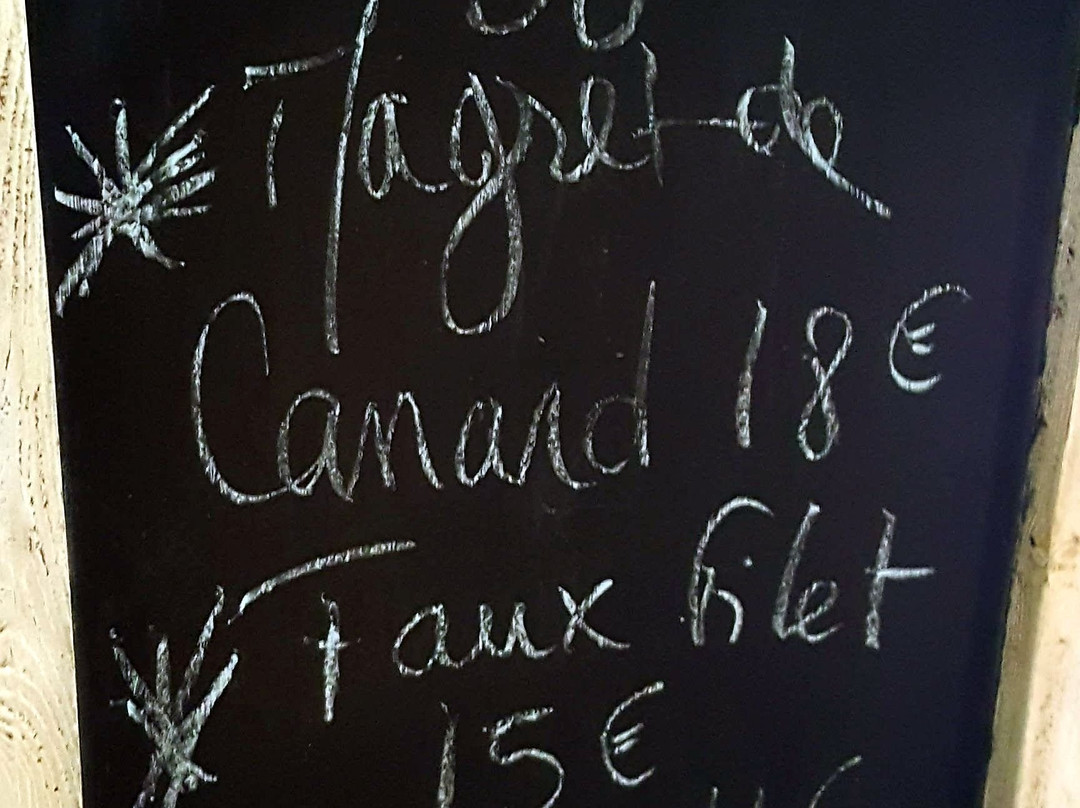 Magret de
Canard 18€
Faux filet
15€